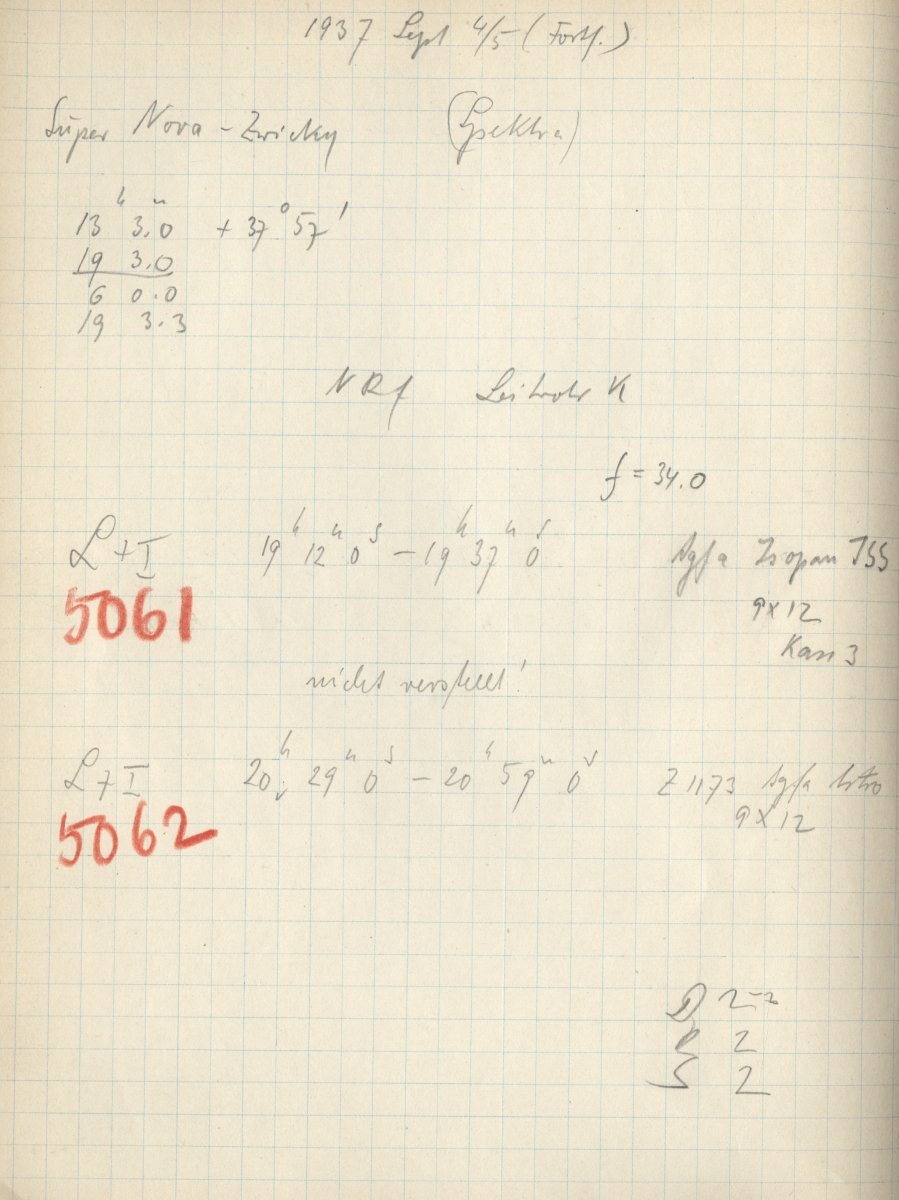 1937 Sept 4/5 (Fortf.)
Super Nova - Zwicky (Spektra)
13h 3.0m + 37° 57'
19 3.0
6 0.0
19 3.3
NRf Leitrohr K
f = 34.0
L + I 19h 12m 0s - 19h 37m 0s Agfa Isopan ISS
5061 9x12
Kass 3
nicht verstellt!
L + I 20h 29m 0s - 20h 59m 0s Z 1173 Agfa Astro
5062 9x12
D 2-3
R 2
S 2